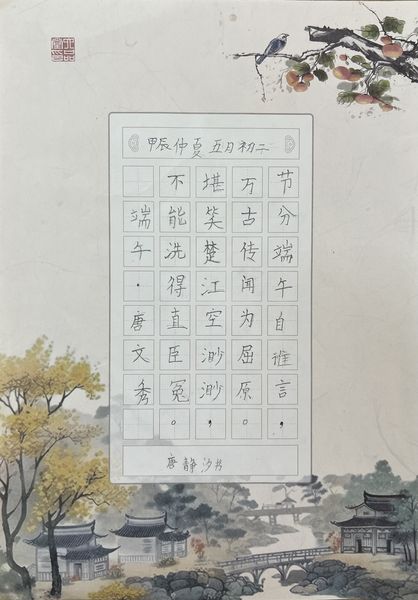 甲辰仲夏五月初二
节分端午自谁言，
万古传闻为屈原。
堪笑楚江空渺渺，
不能洗得直臣冤。
端午·唐文秀
唐静书